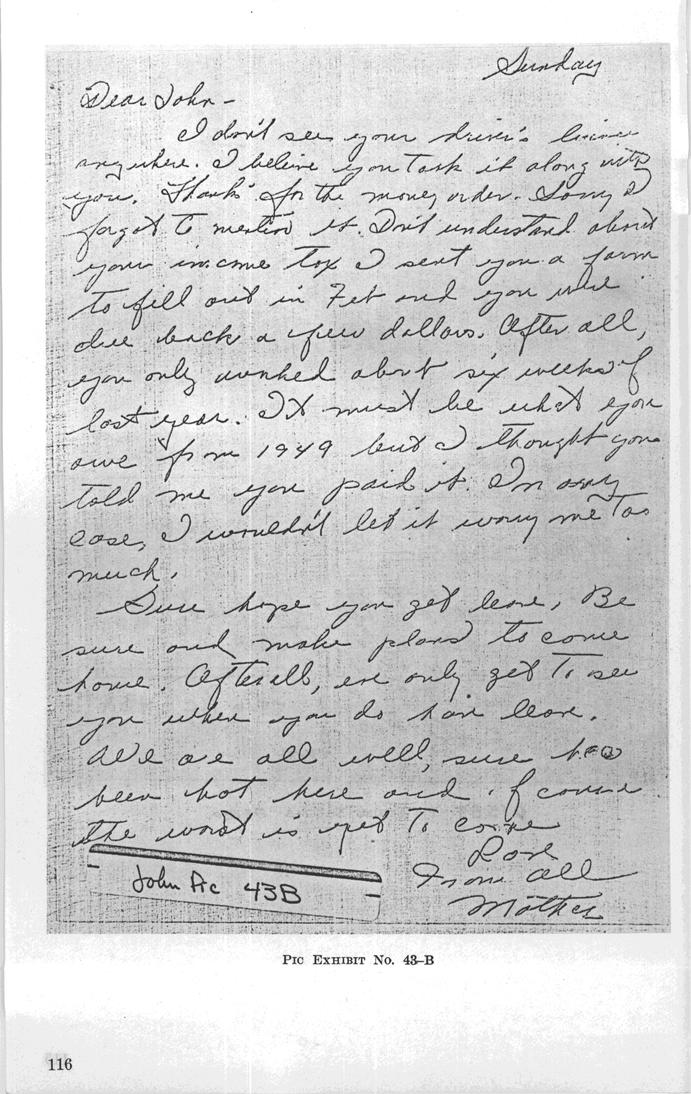 Sunday
Dear John -
I don't see your driver's license
anywhere. I beleive you took it along with
you. Thanks for the money order. Sorry I
forgot to mention it. Don't understand about
your income tax I sent you a form
to fill out in Feb and you were
due back a few dollars. After all,
you only worked about six weeks of
last year. It must be what you
owe from 1949 but I thought you
told me you paid it. In any
case, I wouldn't let it worry me too
much.
Sure hope you get leave, Be
sure and make plans to come
home. After all, we only get to see
you when you do have leave.
We are all well, sure has
been hot here and of course
the worst is yet to come
Love
From all
Mother
John Pic 43B
PIC EXHIBIT NO. 43-B
116